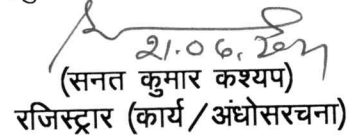 21.06.
(सनत कुमार कश्यप)
रजिस्ट्रार (कार्य/अंधोसरचना)